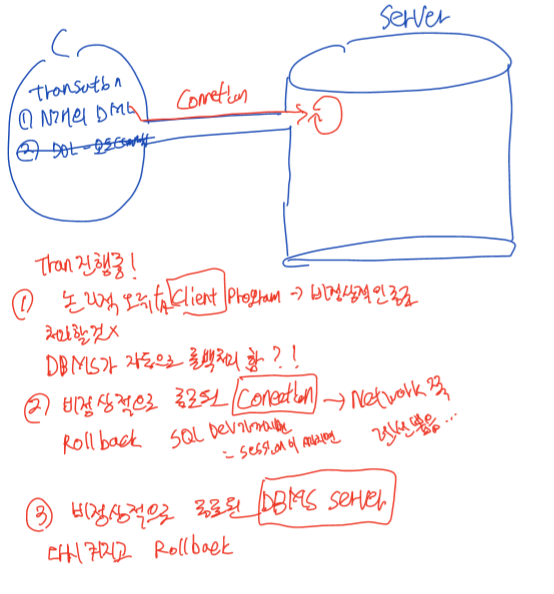 C
Server
Transaction
① N개의 DML
② DDL -
Connection
Tran 진행중!
① 논리적 오류 Client Program → 비정상적인 종료
처리할것 X
DBMS가 자동으로 롤백처리 함?!
② 비정상적으로 종료된 Conection → Network 쪽
Rollback SQL Dev
= Session이 랜선 뽑음...
③ 비정상적으로 종료된 DBMS server
다시 켜지고 Rollback